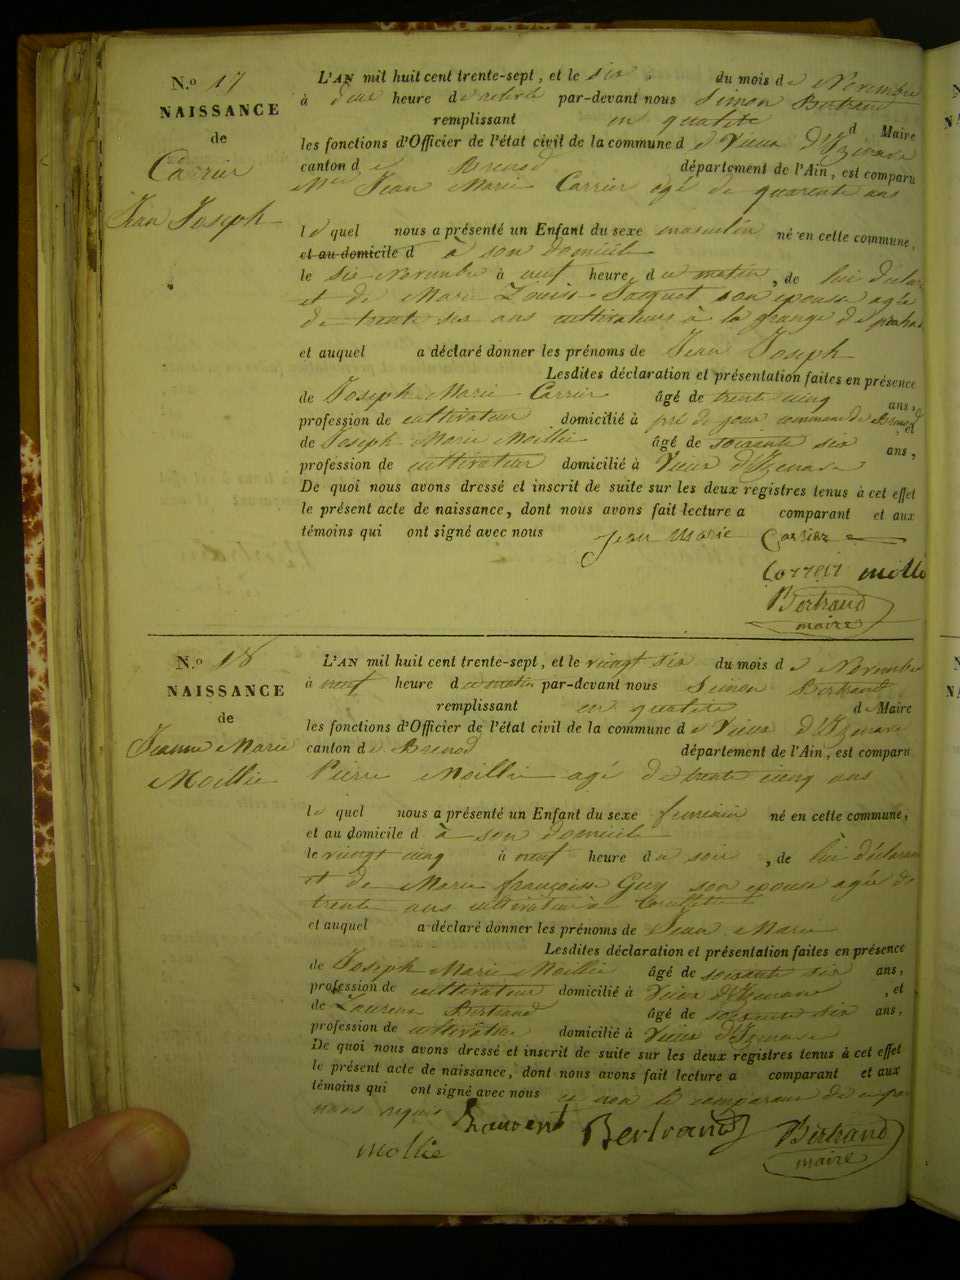 N.o 17
NAISSANCE
de
Carrier
Jean Joseph
L'AN mil huit cent trente-sept, et le six du mois de Novembre
à heure de par-devant nous Simon Bertrand
remplissant en qualité d Maire
les fonctions d'Officier de l'état civil de la commune d e Vieux d'Izenave
canton d e Brenod département de l'Ain, est comparu
Jean Marie Carrier agé de quarente ans
le quel nous a présenté un Enfant du sexe masculin né en cette commune,
et au domicile d à son domicile
le six Novembre à neuf heure, d u matin, de lui déclar
et de Marie Louise Jacquet son epouse agée
de trente six ans cultivateurs à la grange de
et auquel a déclaré donner les prénoms de Jean Joseph
Lesdites déclaration et présentation faites en présence
de Joseph Marie Carrier âgé de trente cinq ans,
profession de cultivateur domicilié à commune de Brenod et
de Joseph Marie Moillie âgé de soixante six ans,
profession de cultivateur domicilié à Vieux d'Izenave
De quoi nous avons dressé et inscrit de suite sur les deux registres tenus à cet effet
le présent acte de naissance, dont nous avons fait lecture a comparant et aux
témoins qui ont signé avec nous Jean Marie Carrier
mollie
Bertrand
maire
N.o 18
NAISSANCE
de
Jeanne Marie
Moillie
L'AN mil huit cent trente-sept, et le vingt six du mois d e Novembre
à neuf heure d u matin par-devant nous Simon Bertrand
remplissant en qualité de Maire
les fonctions d'Officier de l'état civil de la commune d e Vieux d'Izenave
canton de Brenod département de l'Ain, est comparu
Pierre Moillie agé de trente cinq ans
le quel nous a présenté un Enfant du sexe feminin né en cette commune,
et au domicile d à son domicile
le vingt cinq à neuf heure du soir, de lui déclarant
et de Marie françoise Guy son epouse agée de
trente ans cultivateur à
et auquel a déclaré donner les prénoms de Jean Marie
Lesdites déclaration et présentation faites en présence
de Joseph Marie Moillie âgé de soixante six ans,
profession de cultivateur domicilié à Vieux d'Izenave, et
de Laurent Bertrand âgé de soixante six ans,
profession de cultivateur domicilié à Vieux d'Izenave
De quoi nous avons dressé et inscrit de suite sur les deux registres tenus à cet effet
le présent acte de naissance, dont nous avons fait lecture a comparant et aux
témoins qui ont signé avec nous et non le comparant de ce par
nous requis Laurent Bertrand Bertrand
mollie maire